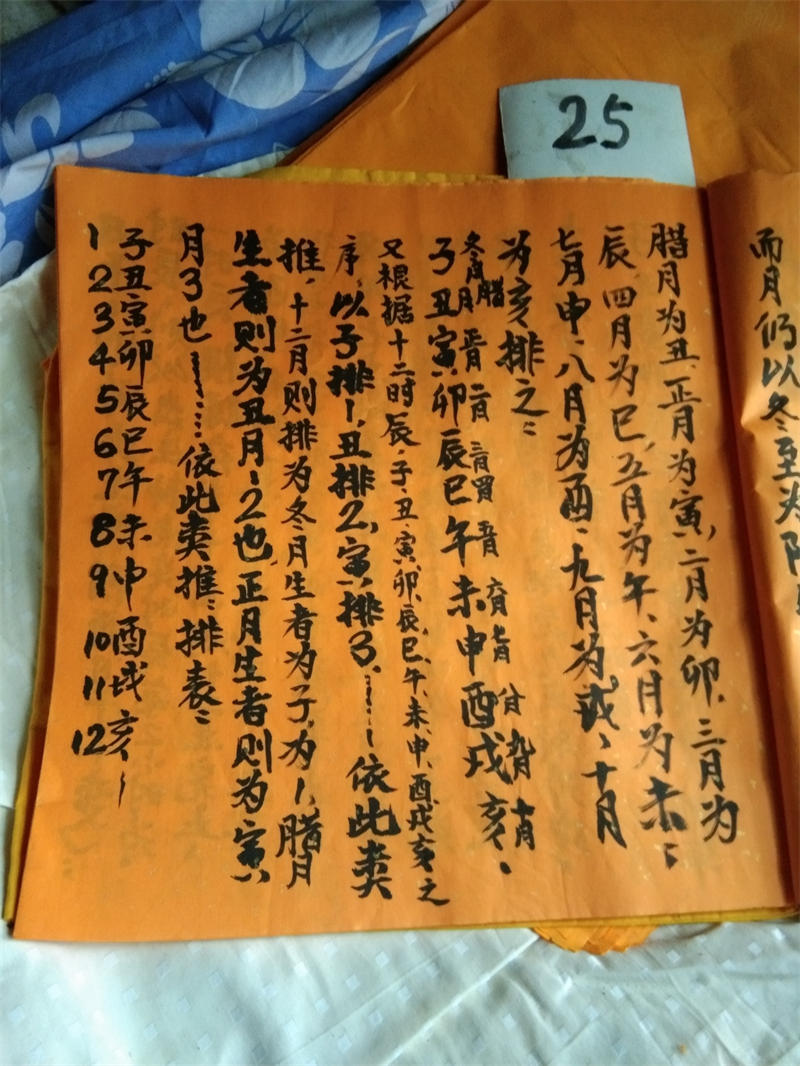 25
而月仍以冬至为
腊月为丑、正月为寅,二月为卯,三月为
辰,四月为巳,五月为午、六月为未:
七月申、八月为酉、九月为戌、十月
为亥排之:
冬月腊月正月二月三月四月五月六月七月八月九月十月
子丑寅卯辰巳午未申酉戌亥。
又根据十二时辰,子、丑、寅、卯、辰、巳、午、未、申、酉、戌、亥之
序,以子排1,丑排2,寅排3、……依此类
推,十二月则排为冬月生者为子,为1,腊月
生者则为丑月、2也,正月生者则为寅
月3也……依此类推:排表:
1 子
2 丑
3 寅
4 卯
5 辰
6 巳
7 午
8 未
9 申
10 酉
11 戌
12 亥